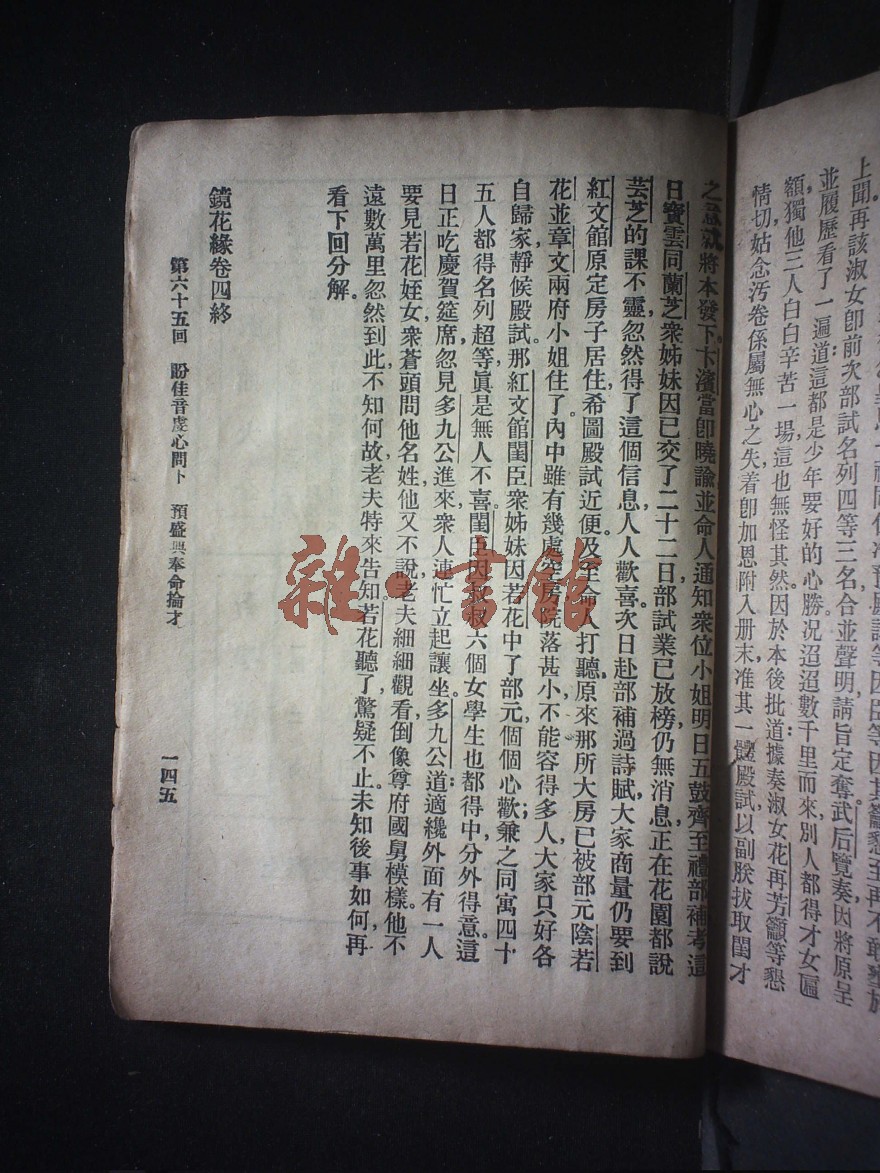 上聞再該淑女卽前次部試名列四等三名合並聲明請旨定奪武后覽奏因將原呈
並履歷看了一遍道這都是少年要好的心勝況迢迢數千里而來別人都得才女匾
額獨他三人白白辛苦一場這也無怪其然因於本後批道據奏淑女花再芳等懇
情切姑念汚卷係屬無心之失着卽加恩附入册末准其一體殿試以副朕拔取閨才
之意就將本發下卞濱當卽曉諭並命人通知衆位小姐明日五鼓齊至禮部補考這
日寶雲同蘭芝衆姊妹因已交了二十二日部試業已放榜仍無消息正在花園都說
芸芝的課不靈忽然得了這個信息人人歡喜次日赴部補過詩賦大家商量仍要到
紅文館原定房子居住希圖殿試近便及至命人打聽原來那所大房已被部元陰若
花並章文兩府小姐住了內中雖有幾處空房院落甚小不能容得多人大家只好各
自歸家靜候殿試那紅文館閨臣衆姊妹因若花中了部元個個心歡兼之同寓四十
五人都得名列超等眞是無人不喜閨臣因叔叔六個女學生也都得中分外得意這
日正吃慶賀筵席忽見多九公進來衆人連忙立起讓坐多九公道適纔外面有一人
要見若花姪女衆蒼頭問他名姓他又不說老夫細細觀看倒像尊府國舅模樣他不
遠數萬里忽然到此不知何故老夫特來告知若花聽了驚疑不止未知後事如何再
看下回分解。
鏡花緣卷四終
第六十五回 盼佳音虔心問卜 預盛典奉命掄才
一四五
雜·書館